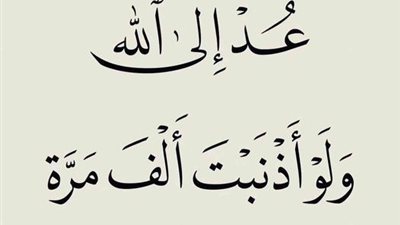 عُدْ إِلَى ٱللّٰه
وَلَوْ أَذْنَبْتَ أَلْفَ مَرَّة